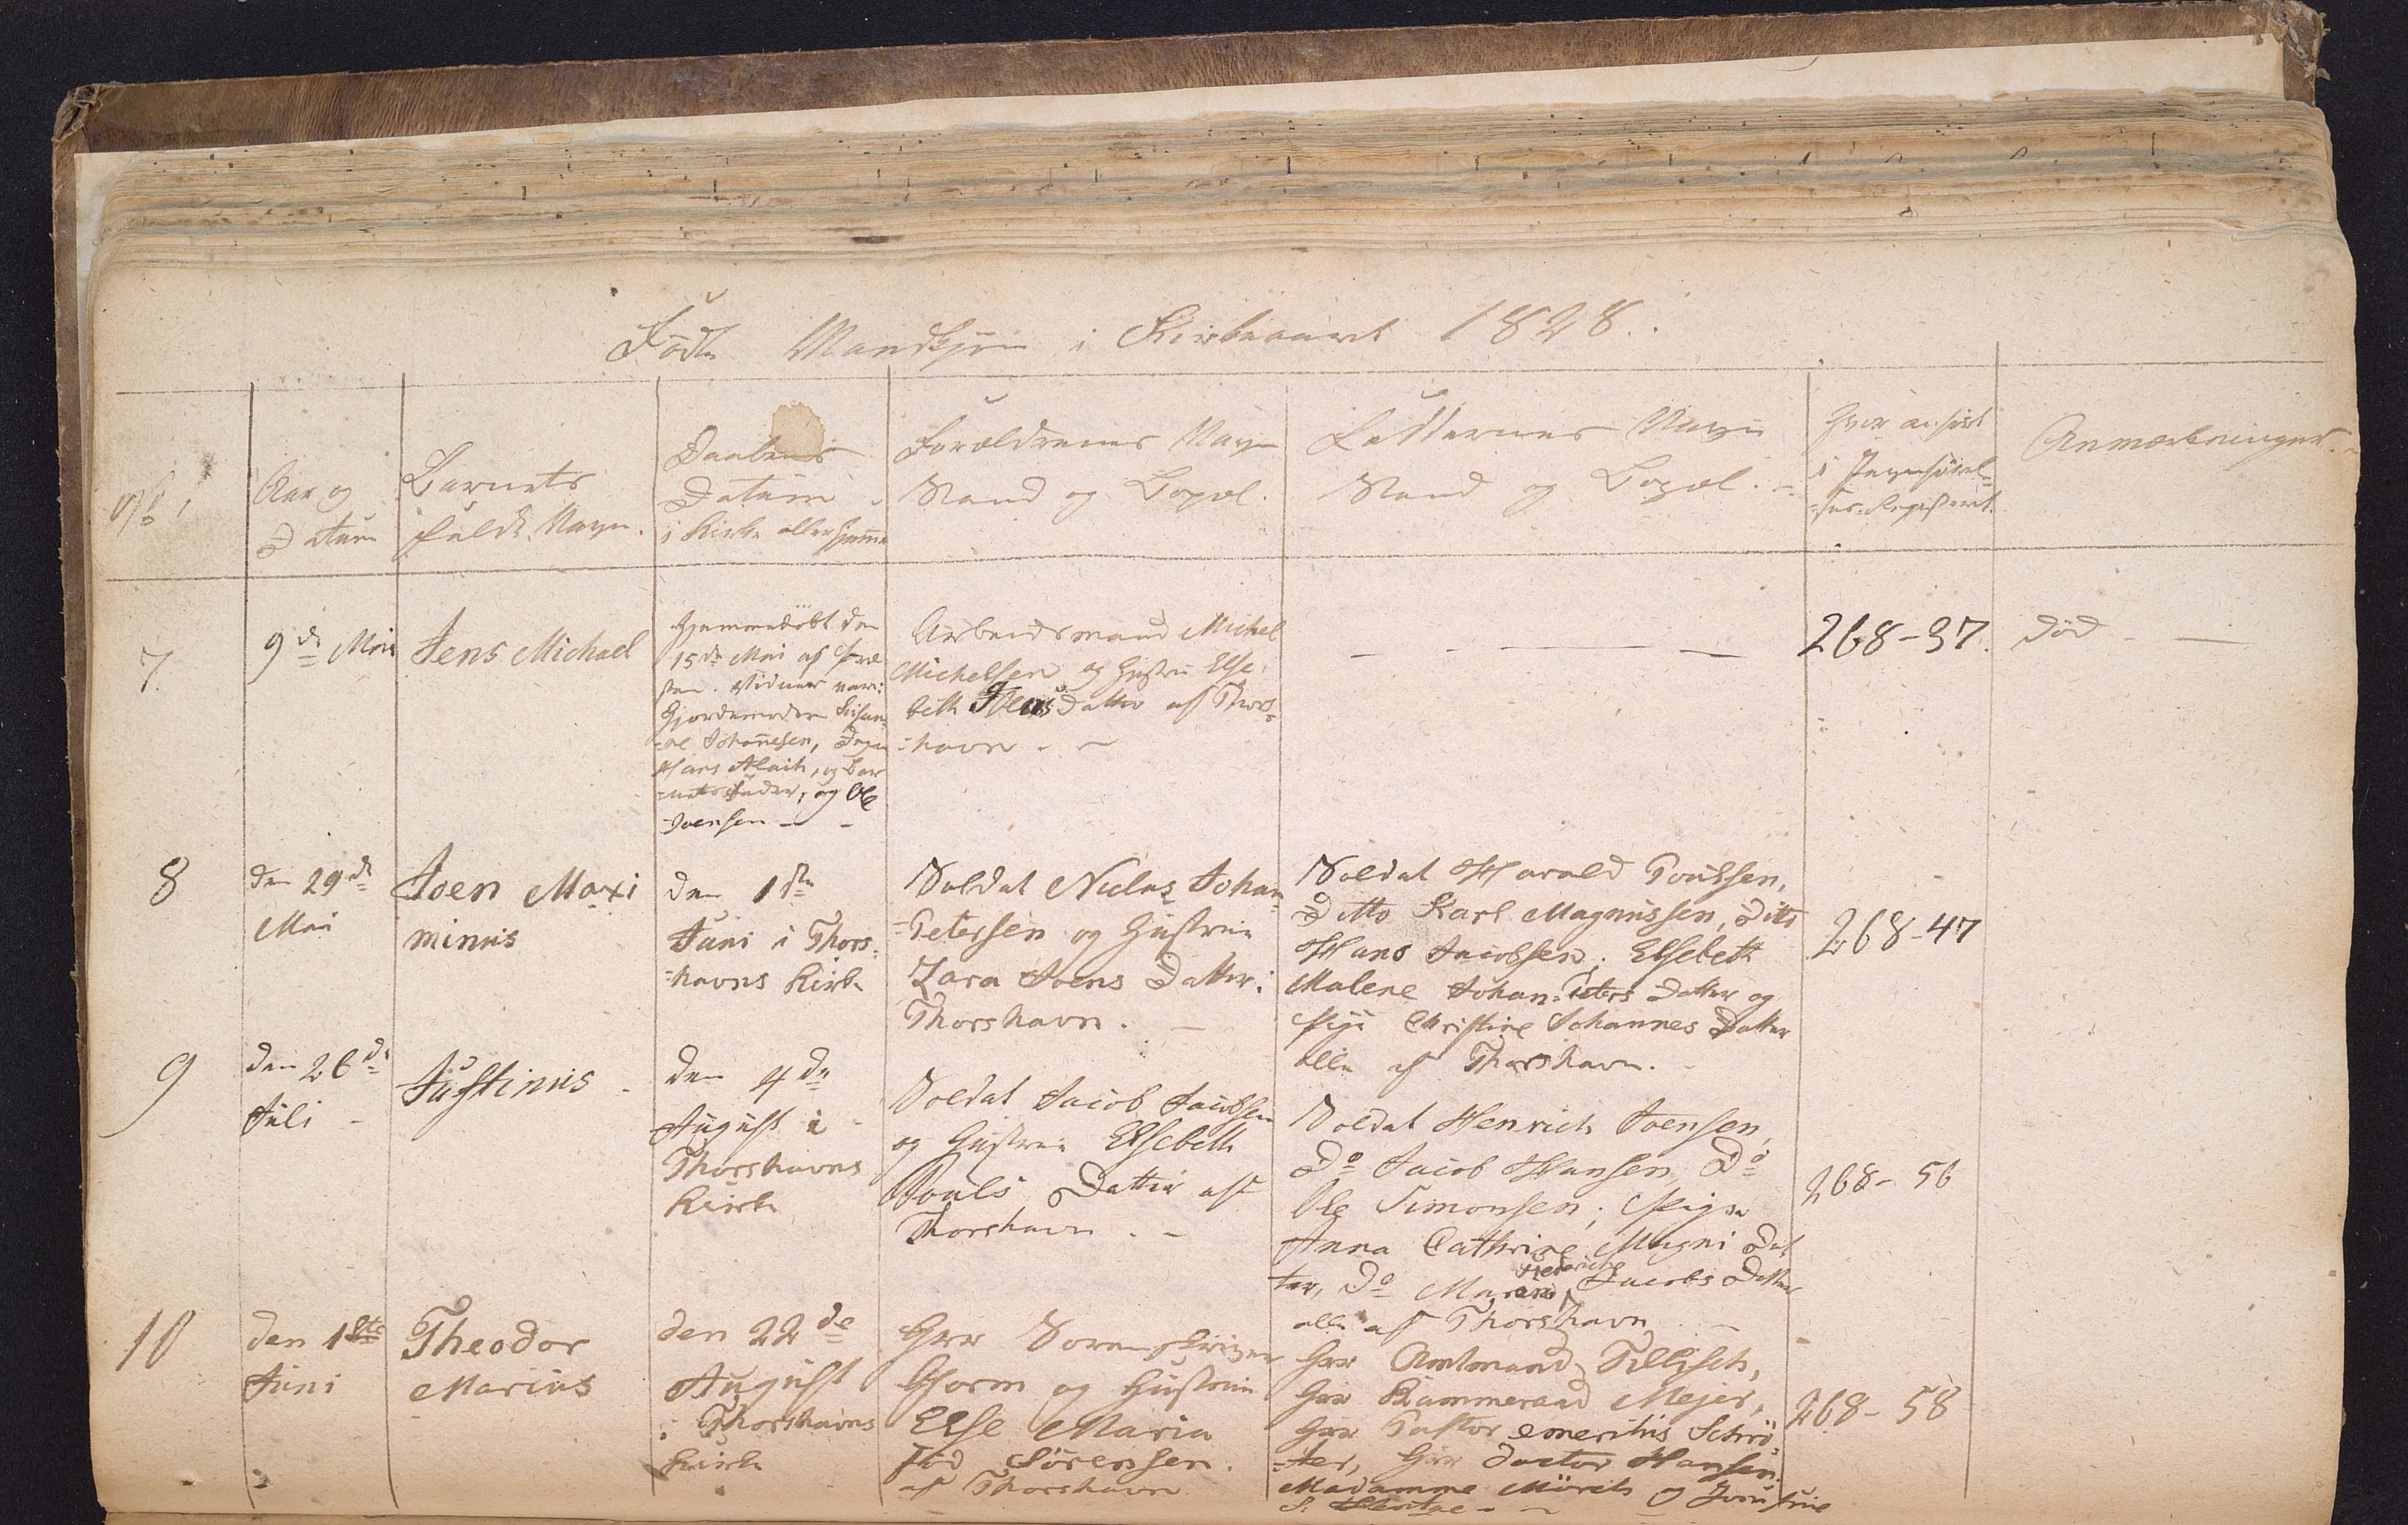 Födte Mandkjøn i Kirkeaaret 1828.
No
Aar og
Datum
Barnets
fulde Navn.
Daabens
Datum
i Kirke eller hjemme
Forældrenes Navn
Stand og Bopæl.
Faddernes Navn
Stand og Bopæl.
Hvor anført
i Jevnførel-
ses-Registeret.
Anmærkninger.
7
9de Mai
Jens Michael
Hjemmedöbt den
15de Mai af Præ
sten. Vidner var:
Gjordemoder Susan-
ne Johannesen, Dreng
Hans, og Bar
nets Fader, og Ole
Joensen
Arbeidsmand Michel
Michelsen og Hustru Else-
beth datter af Thors-
-havn
268-37.
död
8
den 29de
Mai
Joen Maxi
minus
den 1ste
Juni i Thors-
-havns Kirke
Soldat Niclas Johan-
-Petersen og Hustrue
Zara Joens Datter i
Thorshavn.
Soldat Harald Poulsen,
Ditto Karl Magnussen, Dito
Hans Jacobsen; Elsebeth
Malene Johan-Peters Datter og
Pige Christine Johannes Datter
alle af Thorshavn.
268-47
9
den 26de
Juli
Justinus
den 4de
August i
Thorshavns
Kirke
Soldat Jacob Jacobsen
og Hustrue Elsebeth
Pouls Datter af
Thorshavn
Soldat Henrich Joensen,
Do Jacob Hansen, Do
Ole Simonsen; Pige
Anna Cathrine Magni Dat
ter, Do Maren Henriche Jacobs Datter
alle af Thorshavn
268-56
10
den 1ste
Juni
Theodor
Marius
den 22de
August
i Thorshavns
Kirke
Herr Sorenskriver
Hjorm og Hustrue
Else Maria
Föd Sörensen.
af Thorshavn
Herr Amtmand Tillisch,
Herr Kammeraad Mejer,
Herr Pastor emeritus Schrö-
-ter, Herr doctor Hansen.
Madamme Mörch og Jomfrue
268-58